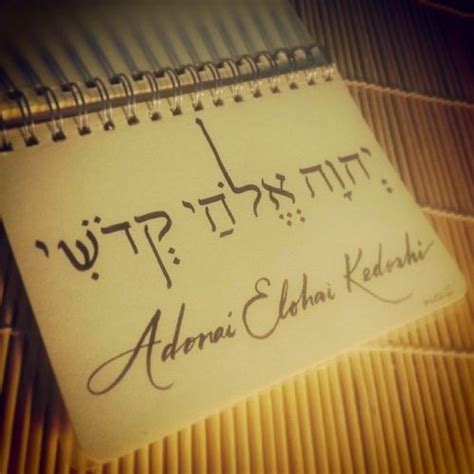 יְהוָה אֱלֹהַי קְדֹשִׁי
Adonai Elohai Kedoshi